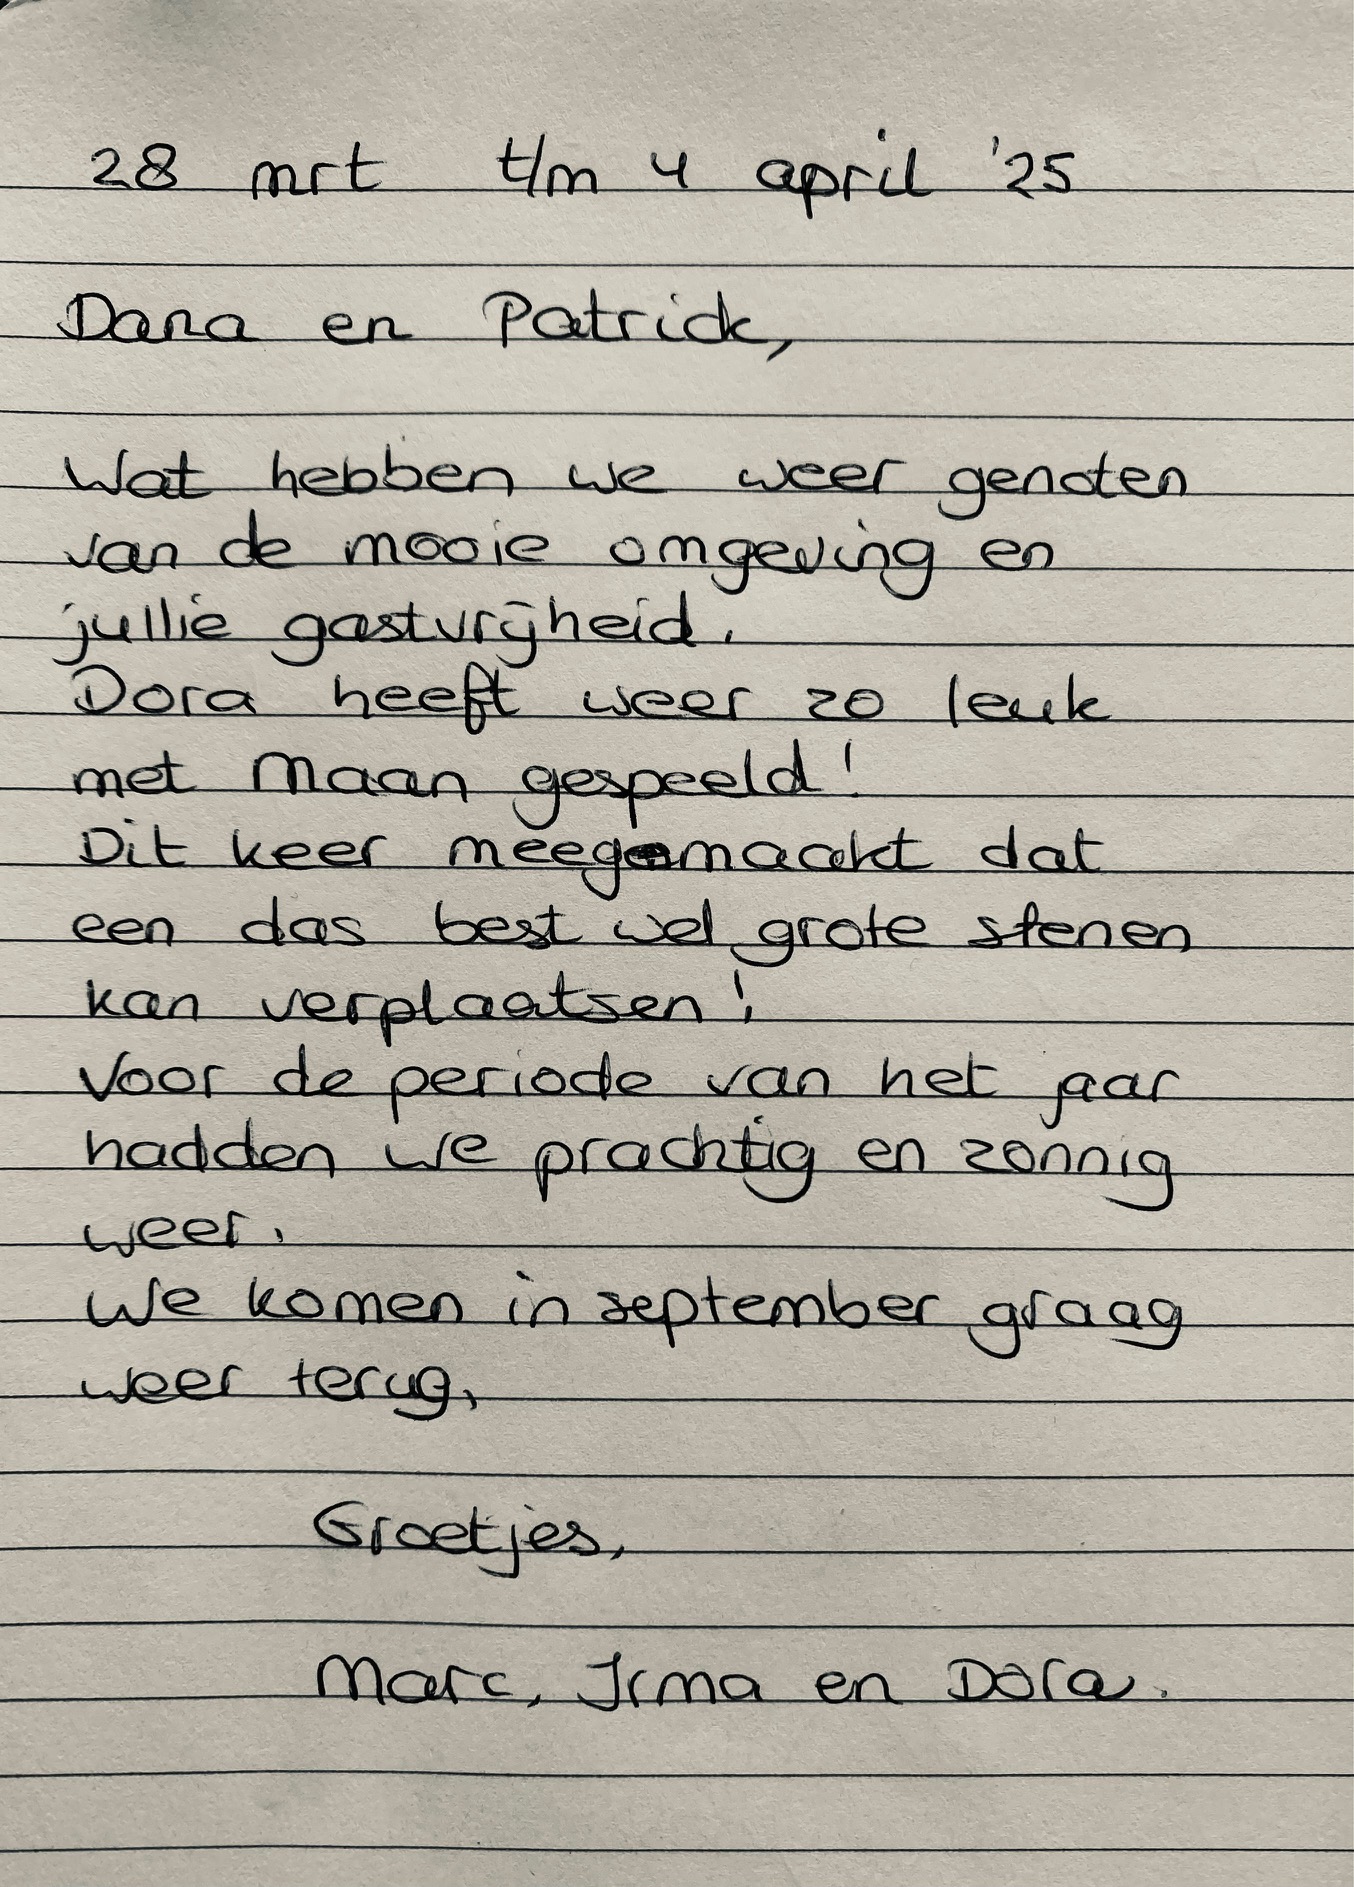 28 mrt t/m 4 april '25
Dana en Patrick,
Wat hebben we weer genoten
van de mooie omgeving en
jullie gastvrijheid.
Dora heeft weer zo leuk
met Maan gespeeld!
Dit keer meegemaakt dat
een das best wel grote stenen
kan verplaatsen!
Voor de periode van het jaar
hadden we prachtig en zonnig
weer.
We komen in september graag
weer terug,
Groetjes,
Marc, Irma en Dora.